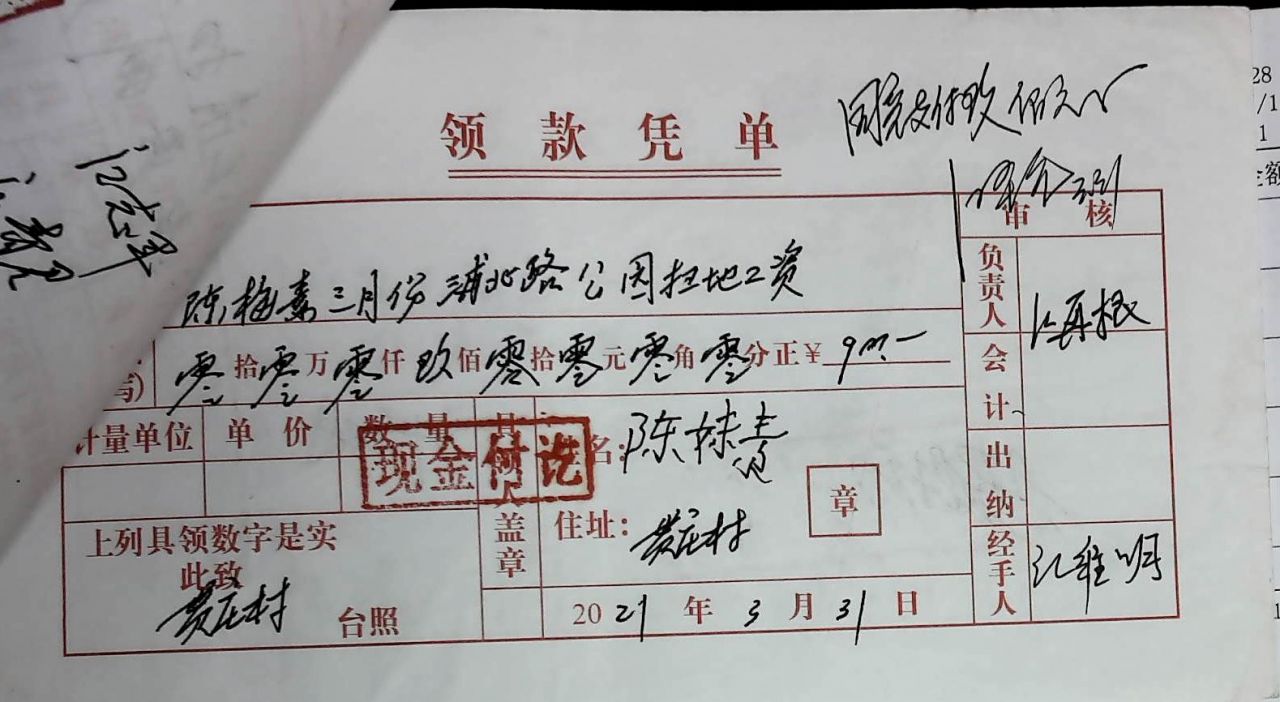 领款凭单
同意支付玖佰元
审核
陈梅素三月份浦北路公园扫地工资
零拾零万零仟玖佰零拾零元零角零分正¥900.—
计量单位 单价 数量
现金付讫
名：陈妹素
住址：黄庄村
章
盖章
上列具领数字是实
此致
黄庄村 台照
2021年3月31日
负责人
会计
出纳
经手人 江维明
28
/1
1
金额